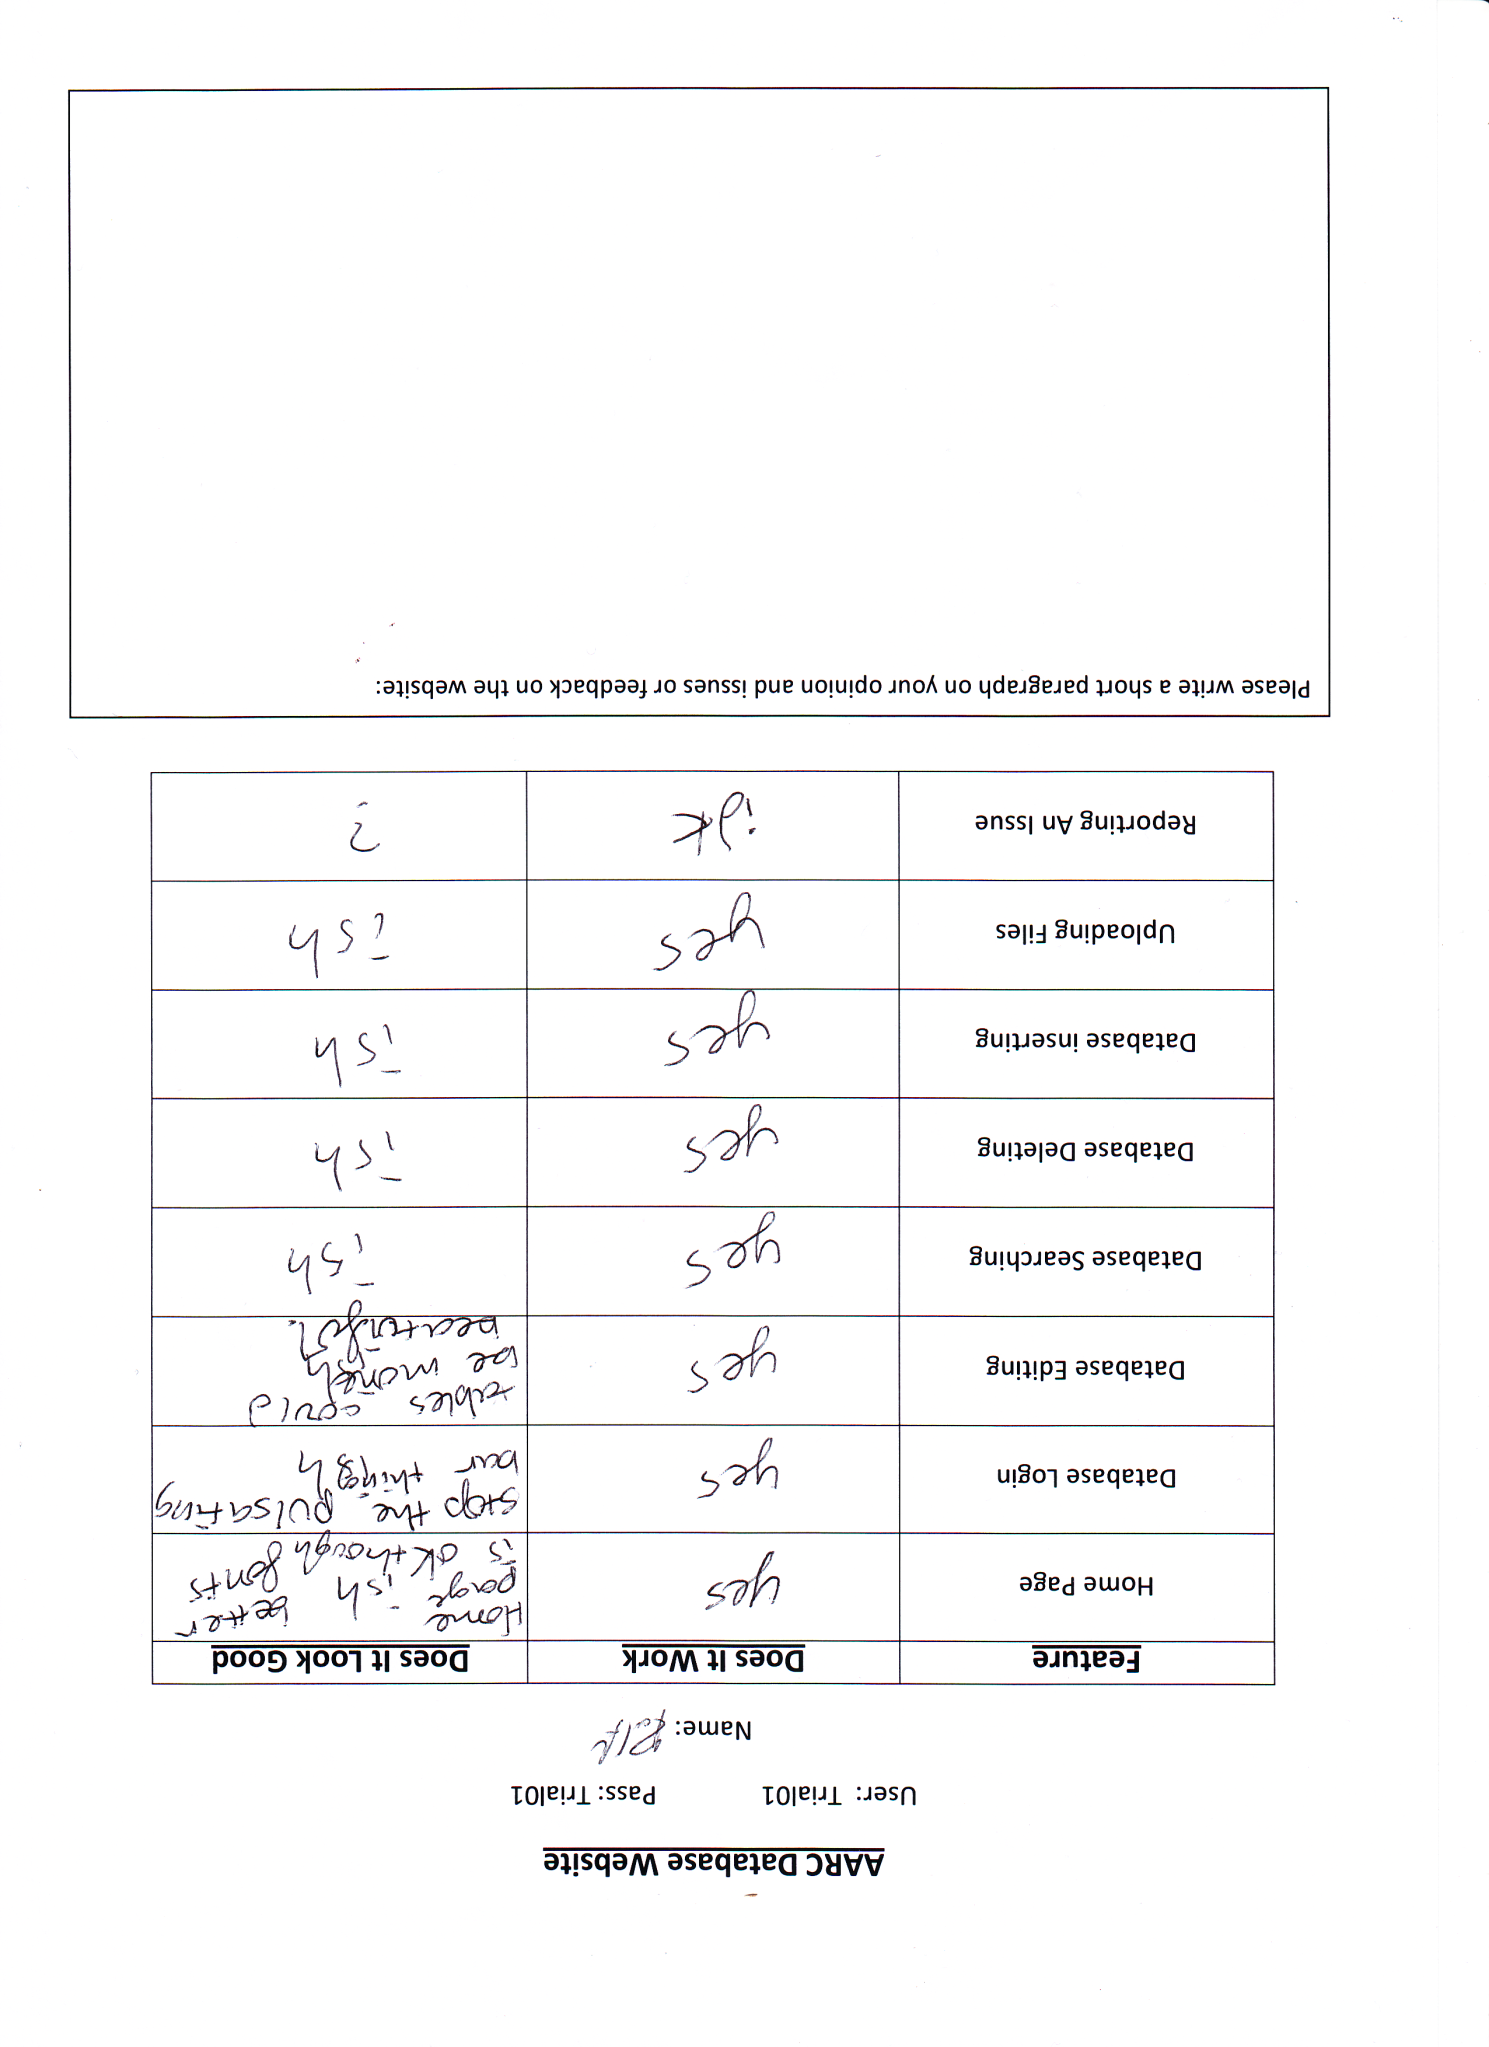 AARC Database Website
User: Trial01 Pass: Trial01
Name:
Feature Does It Work Does It Look Good
Home Page yes Home page is ok though ish better fonts
Database Login yes stop the pulsating bar thing ish
Database Editing yes tables could be more beautiful. ish
Database Searching yes ish
Database Deleting yes ish
Database inserting yes ish
Uploading Files yes ish
Reporting An Issue idk ?
Please write a short paragraph on your opinion and issues or feedback on the website: